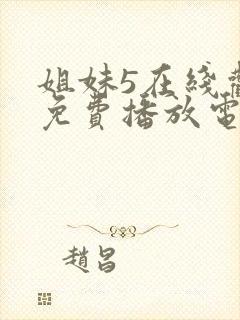 姐妹5在线觀
免費播放電
趙昌